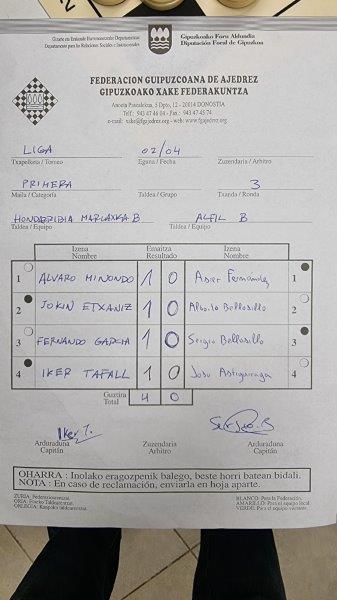 Gizarte eta Erakunde Harremanetarako Departamentua
Departamento para las Relaciones Sociales e Institucionales
Gipuzkoako Foru Aldundia
Diputación Foral de Gipuzkoa
FEDERACION GUIPUZCOANA DE AJEDREZ
GIPUZKOAKO XAKE FEDERAKUNTZA
Anoeta Pasealekua, 5 Dpto, 12 - 20014 DONOSTIA
LIGA 02/04
Txapelketa / Torneo Eguna / Fecha Zuzendaria / Arbitro
PRIMERA 3
Maila / Categoría Taldea / Grupo Txanda / Ronda
HONDARRIBIA MARLAXKA B ALFIL B
Taldea / Equipo Taldea / Equipo
Izena Emaitza Izena
Nombre Resultado Nombre
1 ALVARO MINONDO 1 0 Asier Fernandez 1
2 JOKIN ETXANIZ 1 0 Alberto Bellosillo 2
3 FERNANDO GARCIA 1 0 Sergio Bellosillo 3
4 IKER TAFALL 1 0 Josu Astigarraga 4
Guztira 4 0
Total
Iker T. Sergio B
Arduraduna Zuzendaria Arduraduna
Capitán Arbitro Capitán
OHARRA : Inolako eragozpenik balego, beste horri batean bidali.
NOTA : En caso de reclamación, enviarla en hoja aparte.
ZURIA: Federazioarentzat. BLANCO: Para la Federación.
ORIA: Etxeko Taldearentzat. AMARILLO: Para el equipo local.
ORLEGIA: Kanpoko taldearentzat. VERDE: Para el equipo visitante.